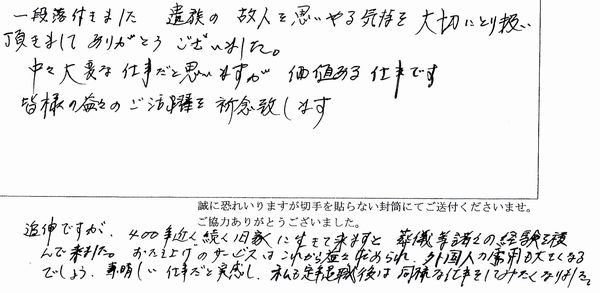 一段落付きました 遺族の故人を思いやる気持を大切にとり扱い
頂きましてありがとうございました。
中々大変な仕事だと思いますが 価値ある仕事です
皆様の益々のご活躍を祈念致します
誠に恐れいりますが切手を貼らない封筒にてご送付くださいませ。
ご協力ありがとうございました。
追伸ですが、400年近く続く旧家に生きて来ますと 葬儀等諸々の経験を積
んで来ました。おたき上げのサービスはこれから益々 められ、外国人の需用も大となる
でしょう、素晴しい仕事だと実感し、私も定年退職後は同様な仕事をしてみたくなりました。